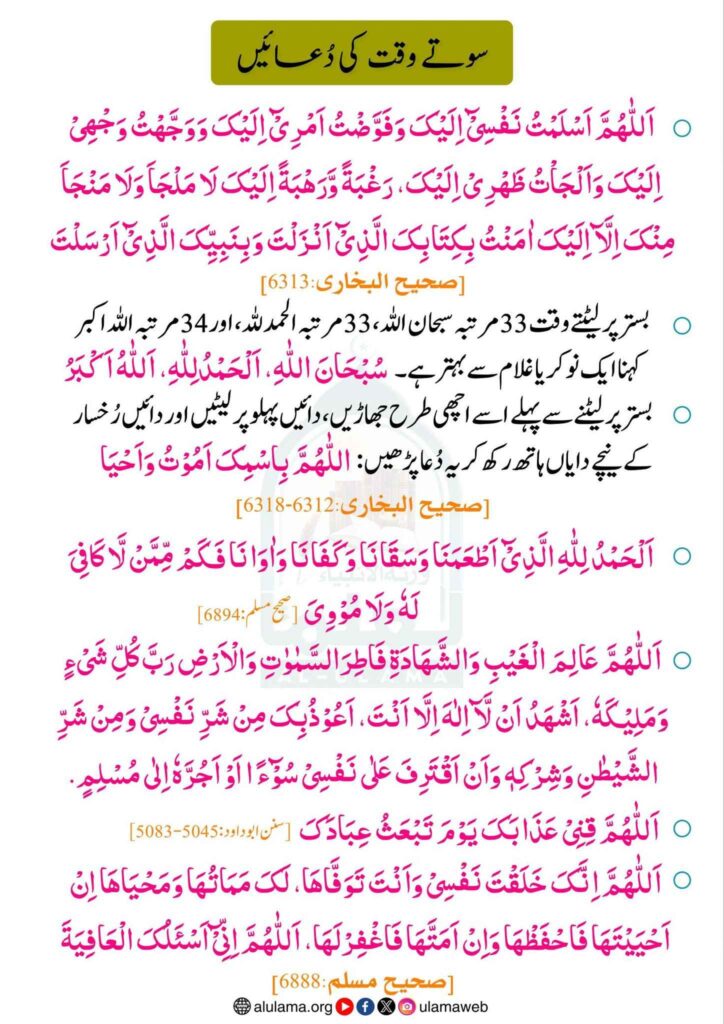 سوتے وقت کی دُعائیں
اَللّٰهُمَّ اَسْلَمْتُ نَفْسِیْۤ اِلَیْکَ وَفَوَّضْتُ اَمْرِیْۤ اِلَیْکَ وَوَجَّهْتُ وَجْهِیْ
اِلَیْکَ وَاَلْجَاْتُ ظَهْرِیْ اِلَیْکَ، رَغْبَةً وَّرَهْبَةً اِلَیْکَ لَا مَلْجَاَ وَلَا مَنْجَاَ
مِنْکَ اِلَّاۤ اِلَیْکَ اٰمَنْتُ بِکِتَابِکَ الَّذِیْۤ اَنْزَلْتَ وَبِنَبِیِّکَ الَّذِیْۤ اَرْسَلْتَ
[صحیح البخاری:6313]
بستر پر لیٹتے وقت 33 مرتبہ سبحان اللہ، 33 مرتبہ الحمد للہ، اور 34 مرتبہ اللہ اکبر
کہنا ایک نوکر یا غلام سے بہتر ہے۔ سُبْحَانَ اللّٰهِ، اَلْحَمْدُ لِلّٰهِ، اَللّٰهُ اَکْبَرُ
بستر پر لیٹنے سے پہلے اسے اچھی طرح جھاڑیں، دائیں پہلو پر لیٹیں اور دائیں رُخسار
کے نیچے دایاں ہاتھ رکھ کر یہ دُعا پڑھیں: اَللّٰهُمَّ بِاسْمِکَ اَمُوْتُ وَاَحْیَا
[صحیح البخاری:6312-6318]
اَلْحَمْدُ لِلّٰهِ الَّذِیْۤ اَطْعَمَنَا وَسَقَانَا وَکَفَانَا وَاٰوَانَا فَکَمْ مِّمَّنْ لَّا کَافِیَ
لَهٗ وَلَا مُؤْوِیَ [صحیح مسلم:6894]
اَللّٰهُمَّ عَالِمَ الْغَیْبِ وَالشَّهَادَةِ فَاطِرَ السَّمٰوٰتِ وَالْاَرْضِ رَبَّ کُلِّ شَیْءٍ
وَمَلِیْکَهٗ، اَشْهَدُ اَنْ لَّاۤ اِلٰهَ اِلَّا اَنْتَ، اَعُوْذُ بِکَ مِنْ شَرِّ نَفْسِیْ وَمِنْ شَرِّ
الشَّیْطٰنِ وَشِرْکِهٖ وَاَنْ اَقْتَرِفَ عَلٰی نَفْسِیْ سُوْٓءًا اَوْ اَجُرَّهٗ اِلٰی مُسْلِمٍ.
اَللّٰهُمَّ قِنِیْ عَذَابَکَ یَوْمَ تَبْعَثُ عِبَادَکَ [سنن ابوداود:5045-5083]
اَللّٰهُمَّ اِنَّکَ خَلَقْتَ نَفْسِیْ وَاَنْتَ تَوَفَّاهَا، لَکَ مَمَاتُهَا وَمَحْیَاهَا اِنْ
اَحْیَیْتَهَا فَاحْفَظْهَا وَاِنْ اَمَتَّهَا فَاغْفِرْ لَهَا، اَللّٰهُمَّ اِنِّیْۤ اَسْئَلُکَ الْعَافِیَةَ
[صحیح مسلم:6888]
alulama.org ulamaweb